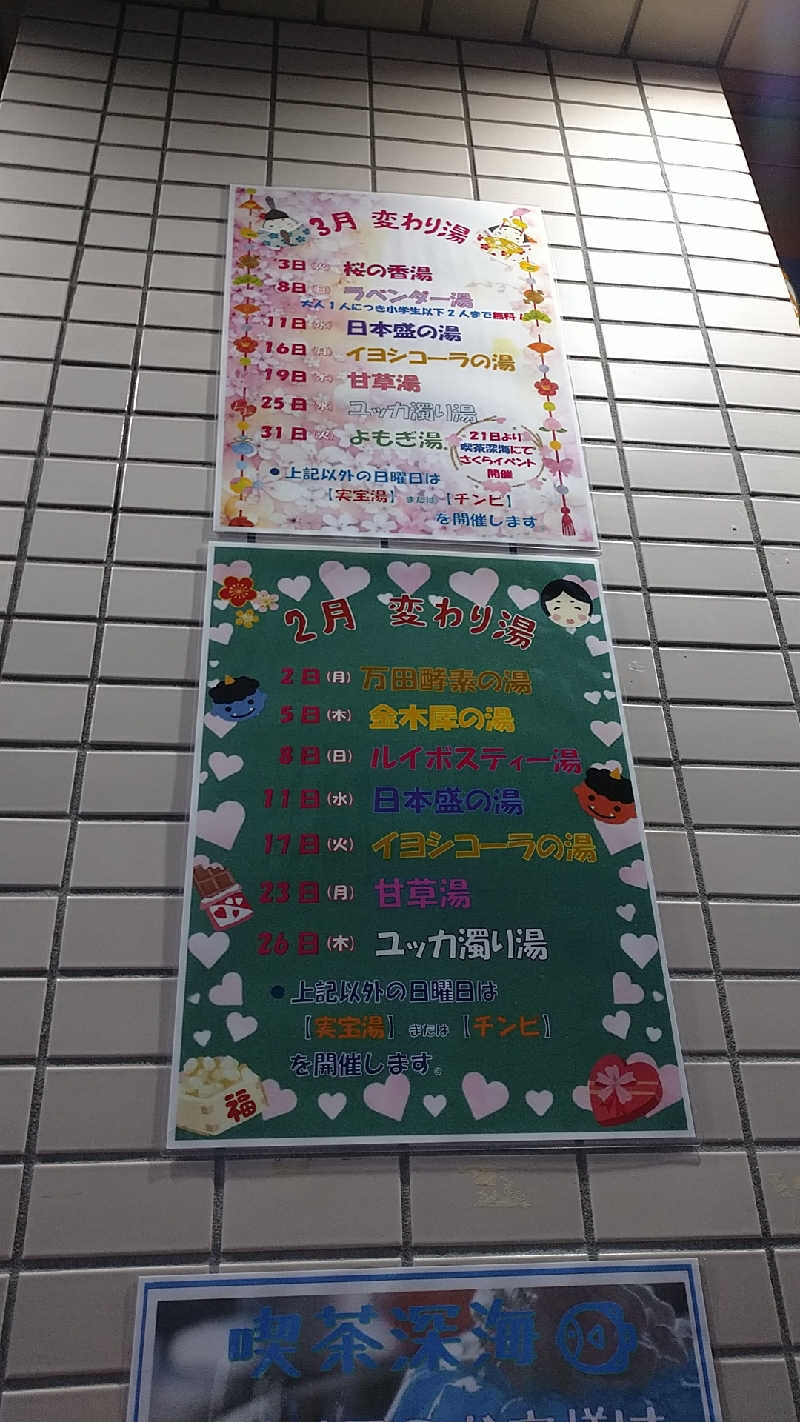 3月 変わり湯
3日(火) 桜の香湯
8日(日) ラベンダー湯
大人1人につき小学生以下2人まで無料!
11日(水) 日本盛の湯
16日(月) イヨシコーラの湯
19日(木) 甘草湯
25日(水) ユッカ濁り湯
31日(火) よもぎ湯
21日より
喫茶深海にて
さくらイベント
開催
●上記以外の日曜日は
【実宝湯】 または 【チンピ】
を開催します
2月 変わり湯
2日(月) 万田酵素の湯
5日(木) 金木犀の湯
8日(日) ルイボスティー湯
11日(水) 日本盛の湯
17日(火) イヨシコーラの湯
23日(月) 甘草湯
26日(木) ユッカ濁り湯
●上記以外の日曜日は
【実宝湯】 または 【チンピ】
を開催します。
福
喫茶深海